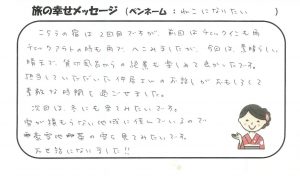 旅の幸せメッセージ（ペンネーム：ねこになりたい）
この宿は2回目ですが、前回はチェックインも雨
チェックアウトの時も雨でへこみましたが、今回は、素晴らしい
晴天で、貸切風呂からの絶景も楽しめて良かったです。
担当していただいた仲居さんのお話しがおもしろくて
素敵な時間を過ごせました。
次回は、冬にも来てみたいです。
雪が積もらない地域に住んでいるので
一面の雪も見てみたいです。
お世話になりました!!